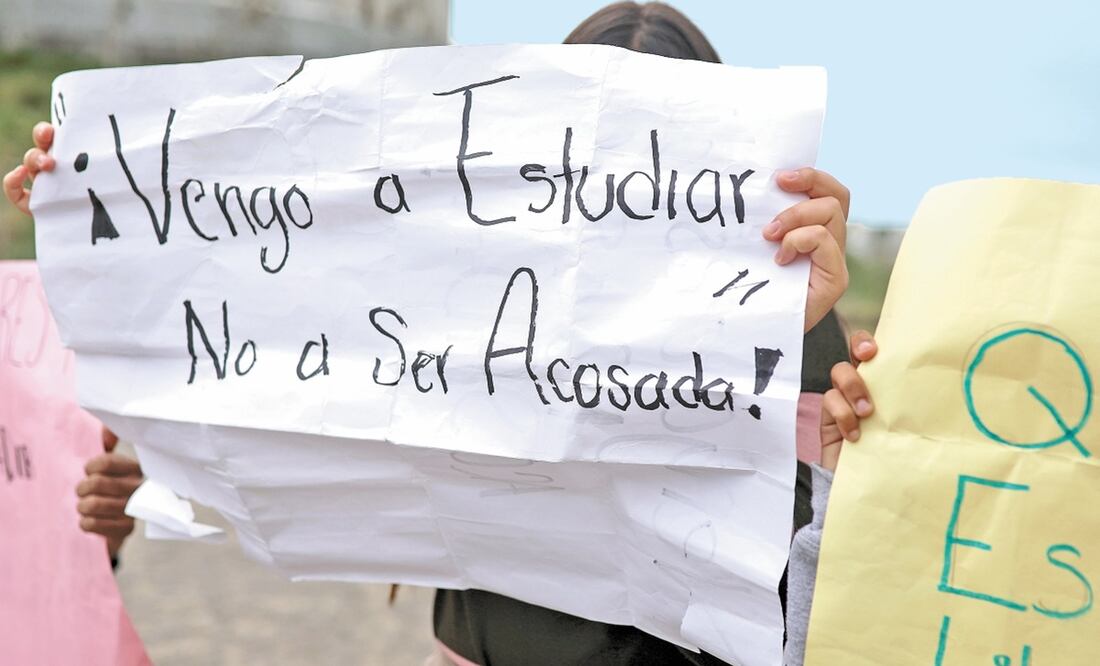 "¡Vengo a Estudiar
No a Ser Acosada!"
Q
Es